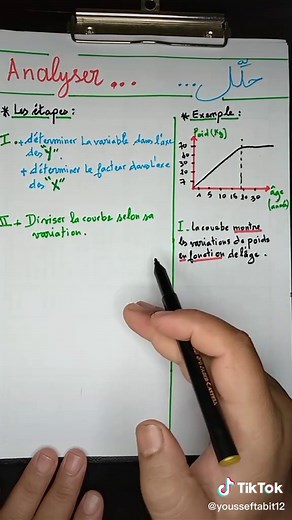 Analyser... ...حلّل
* Les étapes:
I - + déterminer la variable dans l'axe
des "Y".
+ déterminer le facteur dans l'axe
des "X"
II + Diviser la courbe selon sa
variation.
* Exemple:
Poid (Kg)
70
30
10
7
1 5 10 15 18 20 30
âge
(années)
I - La courbe montre
les variations de poids
en fonction de l'âge.
FABER-CASTELL
TikTok
@yousseftabit12